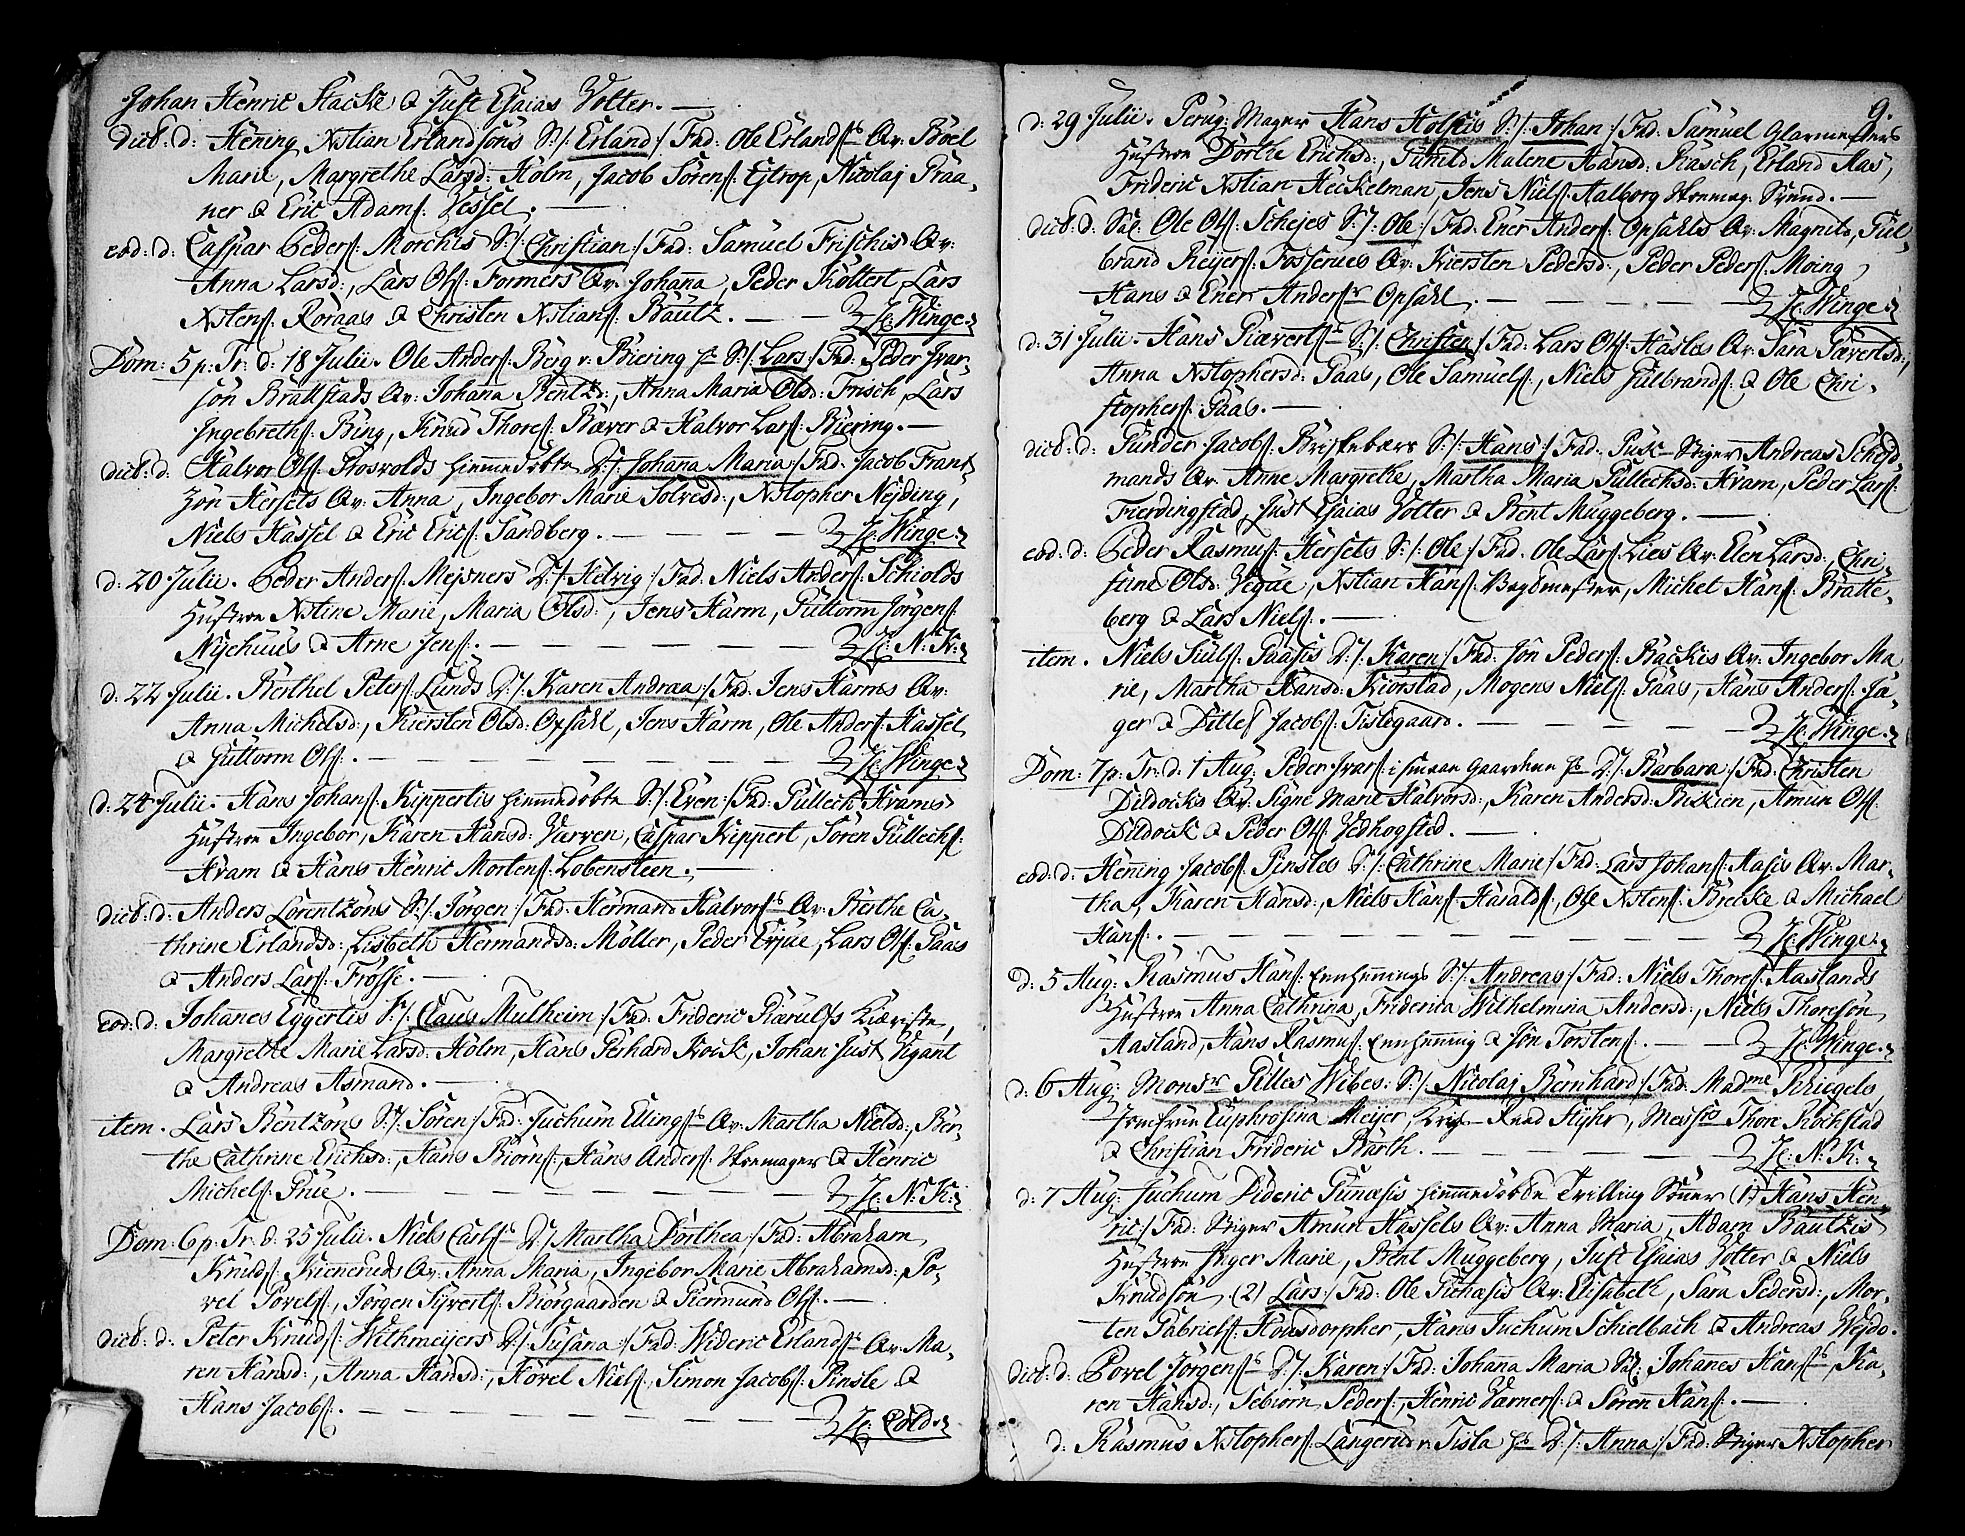 Johan Henric Stacke & Just Esaias Volter. —
dict: d: Hening Xstian Erlandsöns S:/: Erland :/ Fad: Ole Erlands: Qv: Böel
Marie, Margrethe Larsd: Holm, Jacob Sörens: Ejtrop, Nicolaj Praa-
ner & Eric Adams: Vessel. —
eod: d: Caspar Peders: Morchis S:/: Christian :/ Fad: Samuel Frischis Qv:
Anna Larsd:, Lars Ols: Formers Qv: Johana, Peder Költert, Lars
Xstens: Roraas & Christen Xstians: Bäutz. — — H: Winge.
Dom: 5 p: Tr: d: 18 Julii. Ole Anders: Berg v: Biering S:/: Lars :/ Fad: Peder Ivar-
sön Brattstads Qv: Johana Bentzd:, Anna Maria Olsd: Frisch, Lars
Ingebreths: Bing, Knud Thores: Bæver & Halvor Lars: Biering. —
dict: d. Halvor Ols: Stosvolds hiemmedöbte D:/: Johana Maria :/ Fad: Jacob Frant-
zön Hersets Qv: Anna, Ingebor Marie Solvesd:, Xstopher Nejding,
Niels Hassel & Eric Erics: Sandberg. — — — — H: Winge.
d: 20 Julii. Peder Anders: Mejsners D:/: Helvig :/ Fad: Niels Anders: Schiolds
Hustroe Xstine Marie, Maria Olsd:, Jens Harm, Guttorm Jörgens:
Nyehuus & Arne Jens: — — — — H: N: K:
d: 22 Julii. Berthel Peters: Lunds D:/: Karen Andrea :/ Fad: Jens Harms Qv:
Anna Michelsd:, Kiersten Olsd: Opsahl, Jens Harm, Ole Anders: Hassel,
& Guttorm Ols: — — — — H: Winge.
d: 24 Julii. Hans Johans: Kippertis hiemmedöbte S:/: Even :/ Fad: Gullech Krams
Hustroe Ingebor, Karen Hansd: Vierven, Caspar Kippert, Sören Gullechs:
Kram & Hans Henric Mortens: Lobensteen. —
dict: d: Anders Lorentzöns S:/: Jörgen :/ Fad: Hermand Halvors: Qv: Berthe Ca-
thrine Erlandsd:, Lisbeth Hermandsd: Möller, Peder Erjue, Lars Ols: Gaas
& Anders Lars: Frosse. —
eod: d: Johanes Eggertis S:/: Claus Mulheim :/ Fad: Frideric Kiærulfs Kiæriste,
Margrethe Marie Larsd: Holm, Hans Gerhard Kock, Johan Just Vigant
& Andreas Asmand. —
item. Lars Bentzöns S:/: Sören :/ Fad: Juchum Ellings: Qv: Martha Nielsd:, Ber-
the Cathrine Erichsd:, Hans Biörns:, Hans Anders: Skremager & Henric
Michels: Prue. — — — — H: N: K:
Dom: 6 p: Tr: d: 25 Julii. Niels Carls: D:/ Martha Dorthea :/ Fad: Abraham
Knuds: Kieneruds Qv: Anna Maria, Ingebor Marie Abrahamsd: Po-
vel Povels:, Jörgen Syverts: Biorgaarden & Giermund Ols: —
dict: d: Peter Knuds: Withmejers D:/: Susana :/ Fad: Wideric Erlands: Qv: Ma-
ren Hansd:, Anna Hansd:, Hövel Niels:, Simon Jacobs: Pinsle &
Hans Jacobs: — — — — H: Cold.
9.
d: 29 Julii. Peruq: Mager Hans Holstis S:/: Johan :/ Fad: Samuel Glarmesters
Hustroe Dorthe Erichsd:, Gunild Malene Hansd: Rasch, Erland Aas,
Frideric Xstian Heckelman, Jens Niels: Aalborg Skremag: Svend. —
dict: d. Sal: Ole Ols: Schejes S:/ Ole :/ Fad: Ener Anders: Opsahls Qv: Magnild, Gul-
brand Reyers: Fosserues Qv: Kiersten Pedersd:, Peder Peders: Moing,
Hans & Ener Anders: Opsahl. — — — H: Winge.
d: 31 Julii. Hans Giæverts: S:/: Christen :/ Fad: Lars Ols: Hasles Qv: Sara Gæverlsd:,
Anna Xstophersd: Gaas, Ole Samuels:, Niels Gulbrands: & Ole Chri-
stophers: Gaas. —
dict: d: Gunder Jacobs: Briskebaks S:/: Hans :/ Fad: Stiger Andreas Schejd-
mands Qv: Anne Margrethe, Martha Maria Gullechsd: Kram, Peder Lars:
Fierdingstad, Just Esaias Volter & Bent Muggeberg. —
eod: d: Peder Rasmus: Hersets S:/: Ole :/ Fad: Ole Lars: Lies Qv: Elen Larsd:, Chri-
stine Olsd: Vegue, Xstian Hans: Bergmester, Michel Hans: Bratte-
berg & Lars Niels: —
item. Niels Giuls: Gaasis D:/: Karen :/ Fad: Jon Peders: Backis Qv: Ingebor Ma
rie, Martha Hansd: Kiorstad, Mogens Niels: Gaas, Hans Anders: Ja-
ger & Ditlef Jacobs: Tislegaard. — — — H: Winge.
Dom: 7 p: Tr: d: 1 Aug: Peder Ivars: i Smeae Gaarden D:/: Barbara :/ Fad: Christen
Dildocks Qv: Signe Marie Halvorsd:, Karen Andersd: Biskien, Amun Ols:
Dildock & Peder Ols: Vedhogsted. —
eod: d: Hening Jacobs: Pinsles S:/: Cathrine Marie :/ Fad: Lars Johans: Aasis Qv: Mar-
tha, Karen Hansd:, Niels Hans: Haralds:, Ole Xstens: Brecke & Michael
Hans: — — — — H: Winge.
d: 5 Aug: Rasmus Hans: S:/: Andreas :/ Fad: Niels Thores: Aaslands
Hustroe Anna Cathrina, Friderica Wilhelmina Andersd:, Niels Thoresön
Aasland, Hans Rasmus: & Jon Torstens: — — H: Winge.
d: 6 Aug: Monsr Gilles Wibes: S:/: Nicolaj Bernhard :/ Fad: Madme Kriegels,
Jomfrue Euphrosina Meyer, Knud Hyhr, Thore Rockstad
& Christian Frideric Barth. — — — H: N: K:
d: 7 Aug: Juchum Dideric Gunæsis hiemmedöbde Trilling Söner (1) Hans Hen
ric :/ Fad: Stiger Amun Hassels Qv: Anna Maria, Adam Bäutzis
Hustroe Inger Marie, Bent Muggeberg, Just Esaias Volter & Niels
Knudsön. (2) Lars :/ Fad: Ole Gunæsis Qv: Elisabeth, Sara Pedersd:, Mor-
ten Gabriels: Honsdorpher, Hans Juchum Schielbach & Andreas Wejdo.
dict: d: Povel Jörgens: D:/: Karen :/ Fad: Johana Maria Sal: Johanes Hans:, Ka-
ren Hansd:, Sebiörn Peders:, Henric Værners: & Sören Hans: —
d: Rasmus Xstophers: Langerud v: Tisla D:/: Anna :/ Fad: Stiger Xstopher